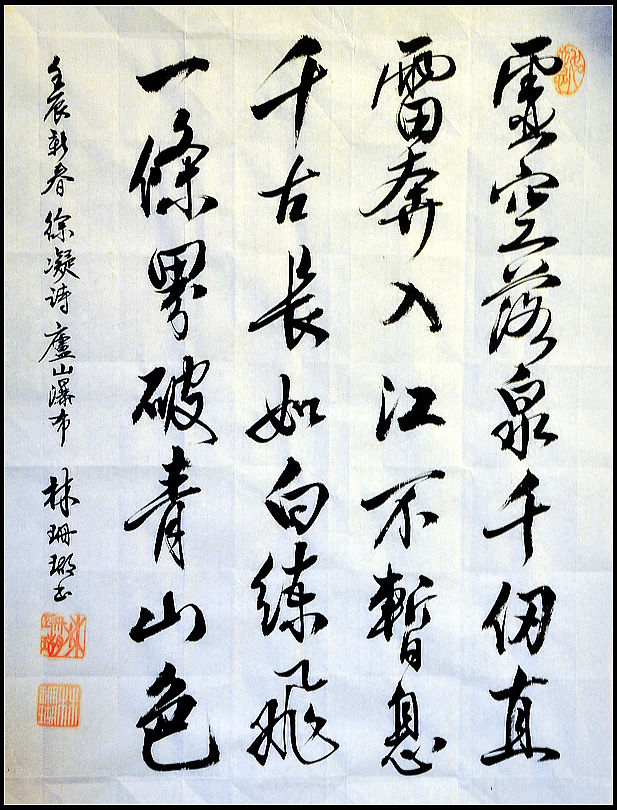 虛空落泉千仞直
雷奔入江不暫息
千古長如白練飛
一條界破青山色
壬辰新春 徐凝詩 廬山瀑布 林珊瑚書